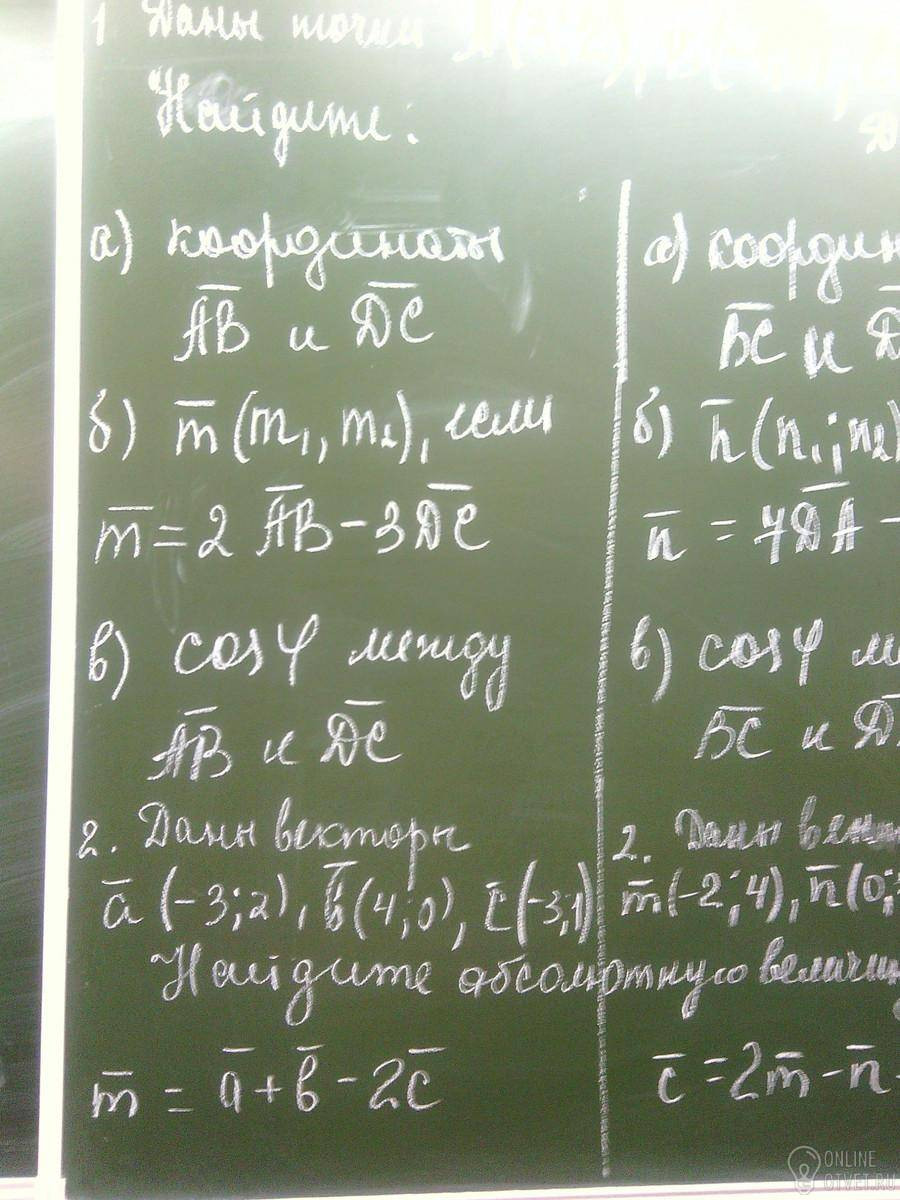 1 Даны точки
Найдите:
а) координаты
AB и DC
б) m (m1, m2), если
m = 2 AB - 3 DC
в) cos φ между
AB и DC
2. Даны векторы
a (-3; 2), b (4; 0), c (-3; 1)
Найдите абсолютную величину
m = a + b - 2c
а) координ
BC и D
б) n (n1; n2)
n = 7 DA -
в) cos φ ме
BC и D
2. Даны век
m (-2; 4), n (0;
c = 2m - n -
ONLINE
OTVET.RU